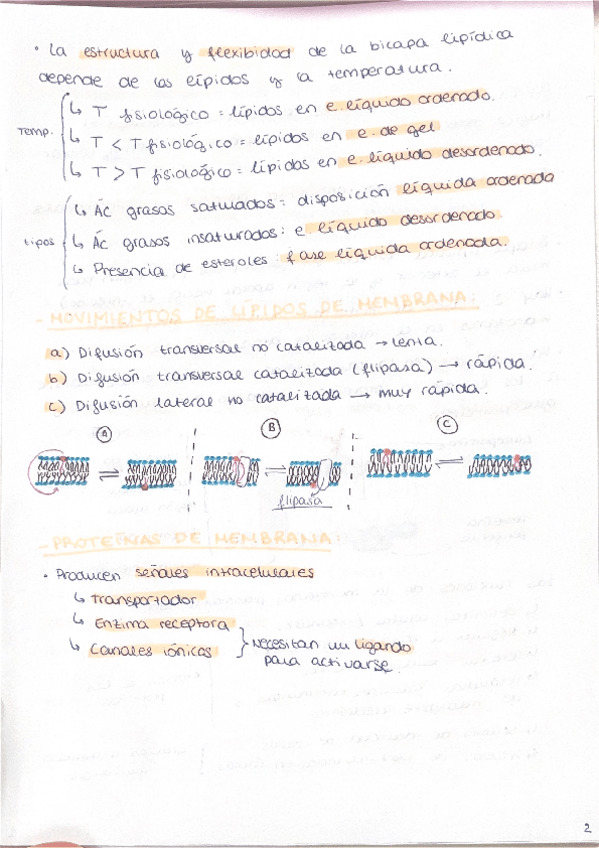 · La estructura y flexibidad de la bicapa lipídica
depende de los lípidos y la temperatura.
Temp.
↳ T fisiológico = lípidos en e. líquido ordenado.
↳ T < T fisiológico = lípidos en e. de gel
↳ T > T fisiológico = lípidos en e. líquido desordenado.
tipos
↳ Ác grasos saturados = disposición líquida ordenada
↳ Ác grasos insaturados: e líquido desordenado.
↳ Presencia de esteroles: fase líquida ordenada.
- MOVIMIENTOS DE LÍPIDOS DE MEMBRANA:
a) Difusión transversal no catalizada → lenta.
b) Difusión transversal catalizada (flipasa) → rápida.
c) Difusión lateral no catalizada → muy rápida.
A B C
flipasa
- PROTEÍNAS DE MEMBRANA:
· Producen señales intracelulares
↳ Transportador
↳ Enzima receptora
↳ Canales iónicos
Necesitan un ligando
para activarse.
2